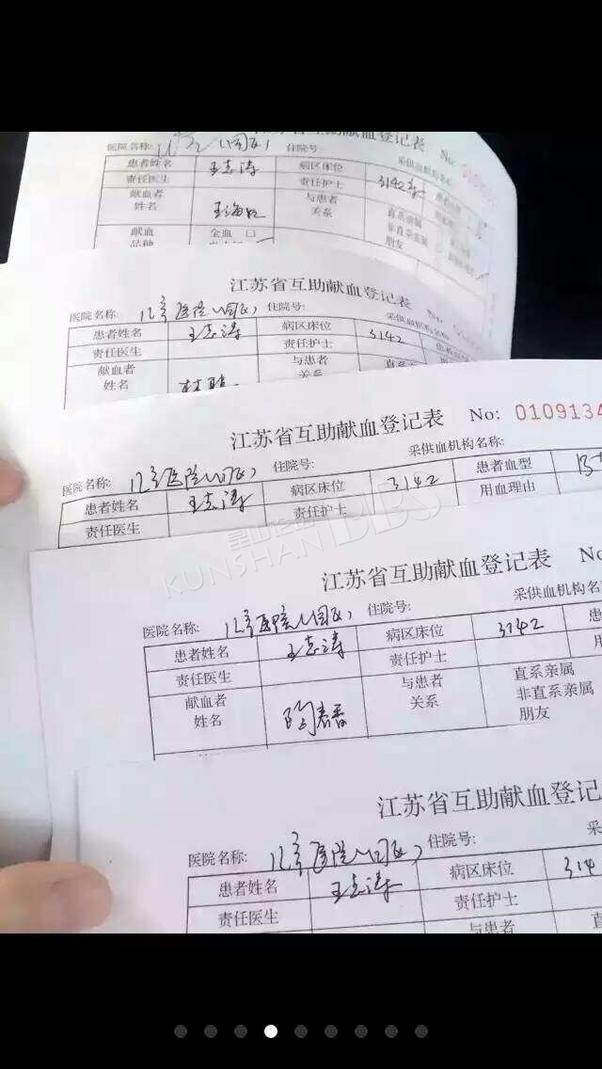 江苏省互助献血登记表 No:
医院名称: 住院号: 采供血机构名称:
患者姓名 王志涛 病区床位 3142
责任医生 责任护士
献血者姓名 王海 与患者关系 直系亲属
非直系亲属
朋友
献血 全血 口
江苏省互助献血登记表 No:
医院名称: 儿童医院(园区) 住院号: 采供血机构名称
患者姓名 王志涛 病区床位 3142
责任医生 责任护士
献血者姓名 与患者关系 直系亲属
江苏省互助献血登记表 No: 0109134
医院名称: 儿童医院(园区) 住院号: 采供血机构名称:
患者姓名 王志涛 病区床位 3142 患者血型 B
责任医生 责任护士 用血理由
KUNSHAN BBS
江苏省互助献血登记表 No
医院名称: 儿童医院(园区) 住院号: 采供血机构名
患者姓名 王志涛 病区床位 3142
责任医生 责任护士
献血者姓名 陶春香 与患者关系 直系亲属
非直系亲属
朋友
江苏省互助献血登记
医院名称: 儿童医院(园区) 住院号: 采
患者姓名 王志涛 病区床位 314
责任医生 责任护士
与患者